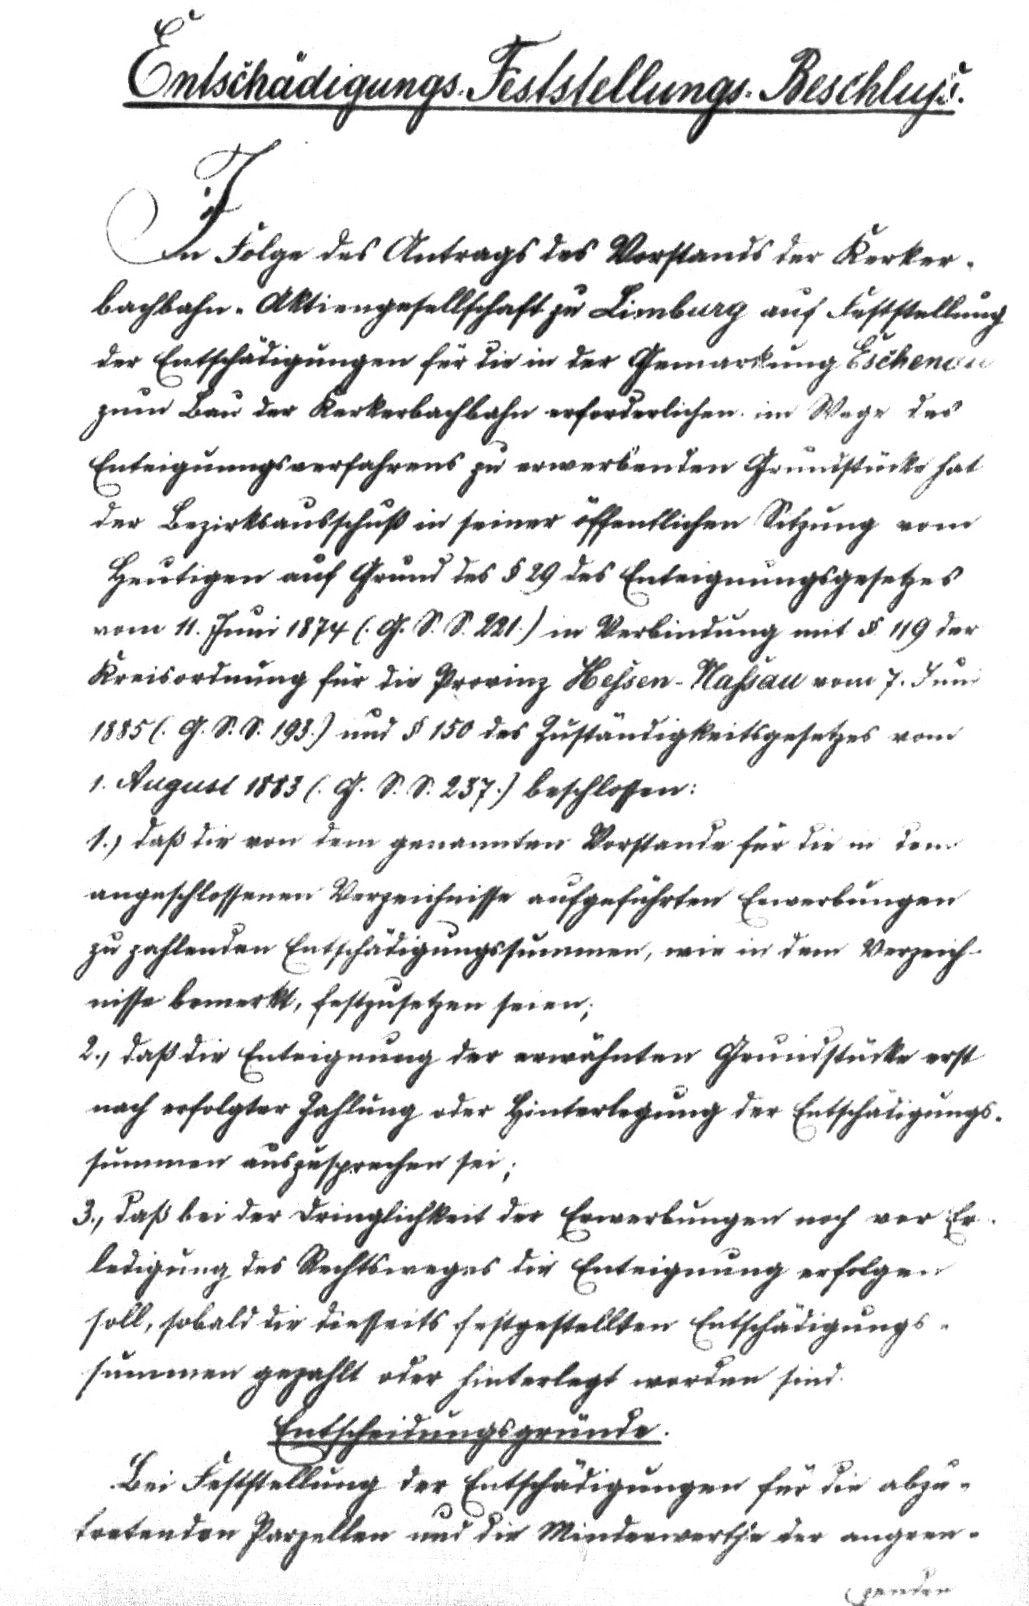 Entschädigungs-Feststellungs-Beschluß.
In Folge des Antrags des Vorstands der Kerker-
bachbahn-Aktiengesellschaft zu Limburg auf Feststellung
der Entschädigungen für die in der Gemarkung Eschenau
zum Bau der Kerkerbachbahn erforderlichen im Wege des
Enteignungsverfahrens zu erwerbenden Grundstücke hat
der Bezirksausschuß in seiner öffentlichen Sitzung vom
Heutigen auf Grund des § 29 des Enteignungsgesetzes
vom 11. Juni 1874 (. G. S. S. 221.) in Verbindung mit § 119 der
Kreisordnung für die Provinz Hessen-Nassau vom 7. Juni
1885 (. G. S. S. 193.) und § 150 des Zuständigkeitsgesetzes vom
1. August 1883 (. G. S. S. 237.) beschlossen:
1., daß die von dem genannten Vorstande für die in dem
angeschlossenen Verzeichnisse aufgeführten Erwerbungen
zu zahlenden Entschädigungssummen, wie in dem Verzeich-
nisse bemerkt, festzusetzen seien;
2., daß die Enteignung der erwähnten Grundstücke erst
nach erfolgter Zahlung oder Hinterlegung der Entschädigungs-
summen auszusprechen sei;
3., daß bei der Dringlichkeit der Erwerbungen noch vor Er-
ledigung des Rechtsweges die Enteignung erfolgen
soll, sobald die diesseits festgestellten Entschädigungs-
summen gezahlt oder hinterlegt worden sind.
Entscheidungsgründe.
Bei Feststellung der Entschädigungen für die abzu-
tretenden Parzellen und die Minderwerthe der angren-
zenden